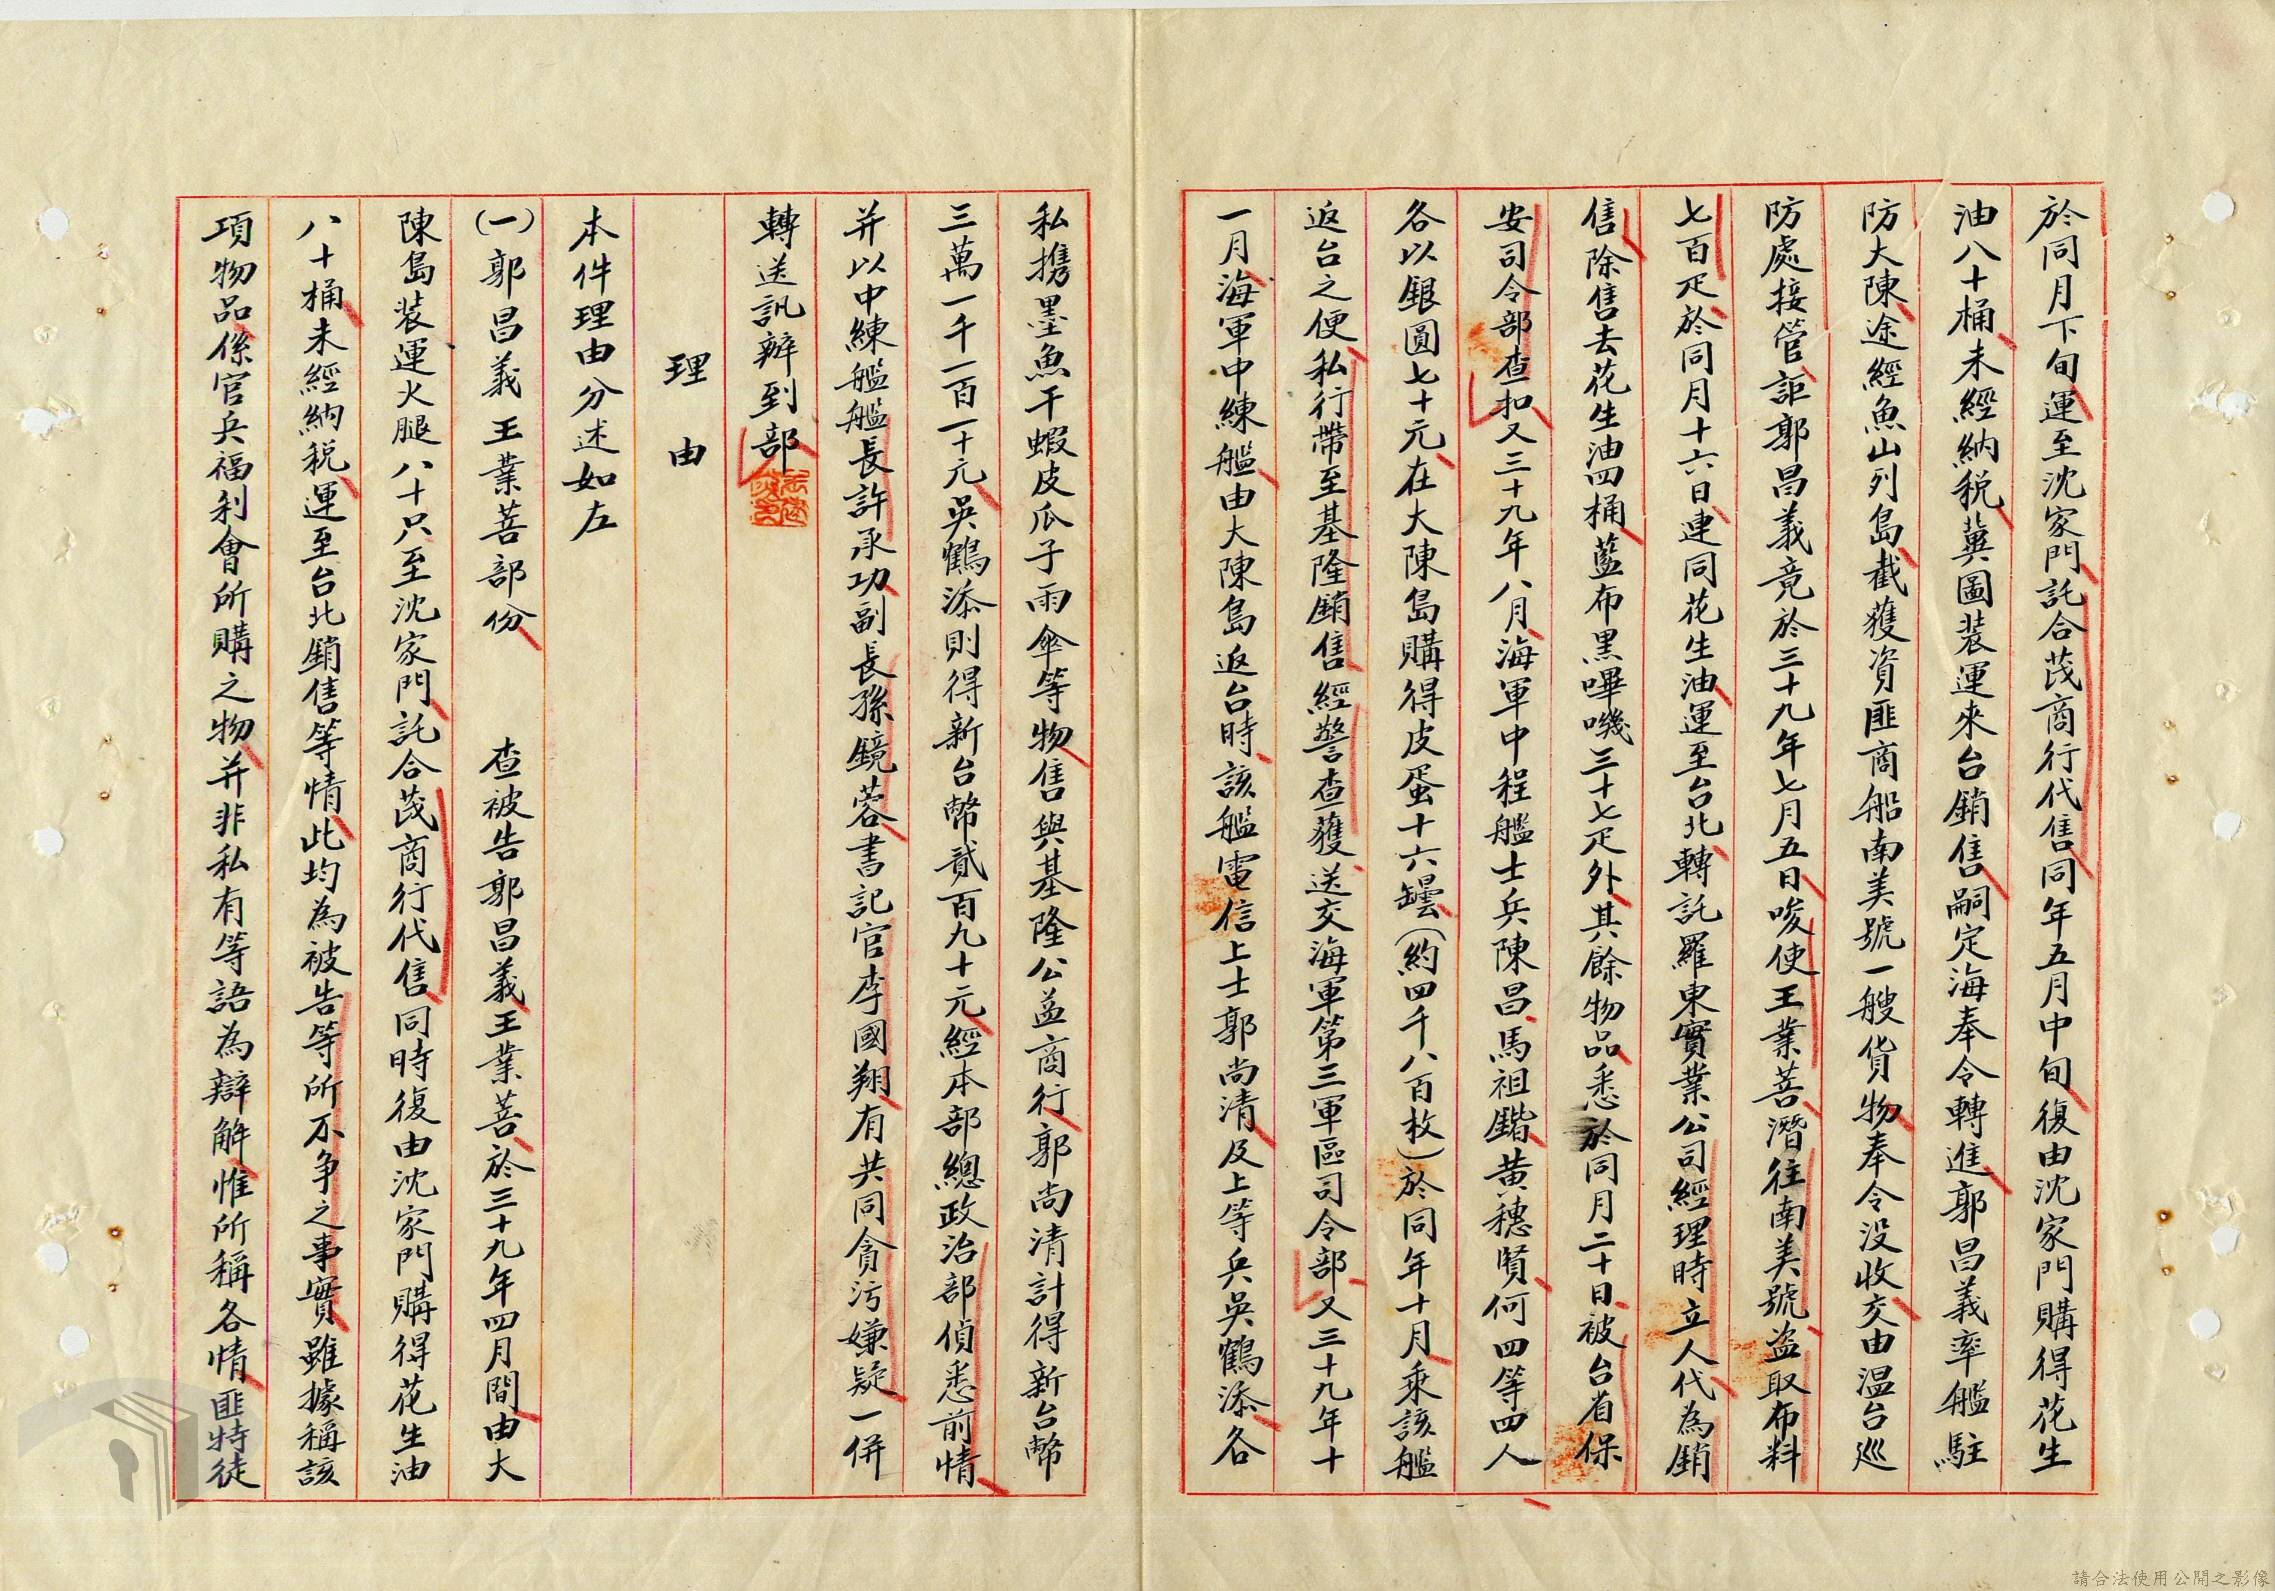 於同月下旬運至沈家門託合茂商行代售同年五月中旬復由沈家門購得花生
油八十桶未經納稅冀圖裝運來台銷售嗣定海奉令轉進郭昌義率艦駐
防大陳途經魚山列島截獲資匪商船南美號一艘貨物奉令没收交由温台巡
防處接管詎郭昌義竟於三十九年七月五日唆使王業菩潛往南美號盗取布料
七百疋於同月十六日連同花生油運至台北轉託羅東實業公司經理時立人代為銷
售除售去花生油四桶藍布黑嗶嘰三十七疋外其餘物品悉於同月二十日被台省保
安司令部查扣又三十九年八月海軍中程艦士兵陳昌馬祖鍇黄穗賢何四等四人
各以銀圓七十元在大陳島購得皮蛋十六罎(約四千八百枚)於同年十月乘該艦
返台之便私行帶至基隆銷售經警查獲送交海軍第三軍區司令部又三十九年十
一月海軍中練艦由大陳島返台時該艦電信上士郭尚清及上等兵吳鶴添各
私携墨魚干蝦皮瓜子雨傘等物售與基隆公益商行郭尚清計得新台幣
三萬一千一百一十元吳鶴添則得新台幣貳百九十元經本部總政治部偵悉前情
并以中練艦艦長許承功副長孫鏡蓉書記官李國翔有共同貪污嫌疑一併
轉送訊辦到部
理由
本件理由分述如左
(一)郭昌義王業菩部份 查被告郭昌義王業菩於三十九年四月間由大
陳島装運火腿八十只至沈家門託合茂商行代售同時復由沈家門購得花生油
八十桶未經納税運至台北銷售等情此均為被告等所不争之事實雖據稱該
項物品係官兵福利會所購之物并非私有等語為辯解惟所稱各情匪特徒
請合法使用公開之影像